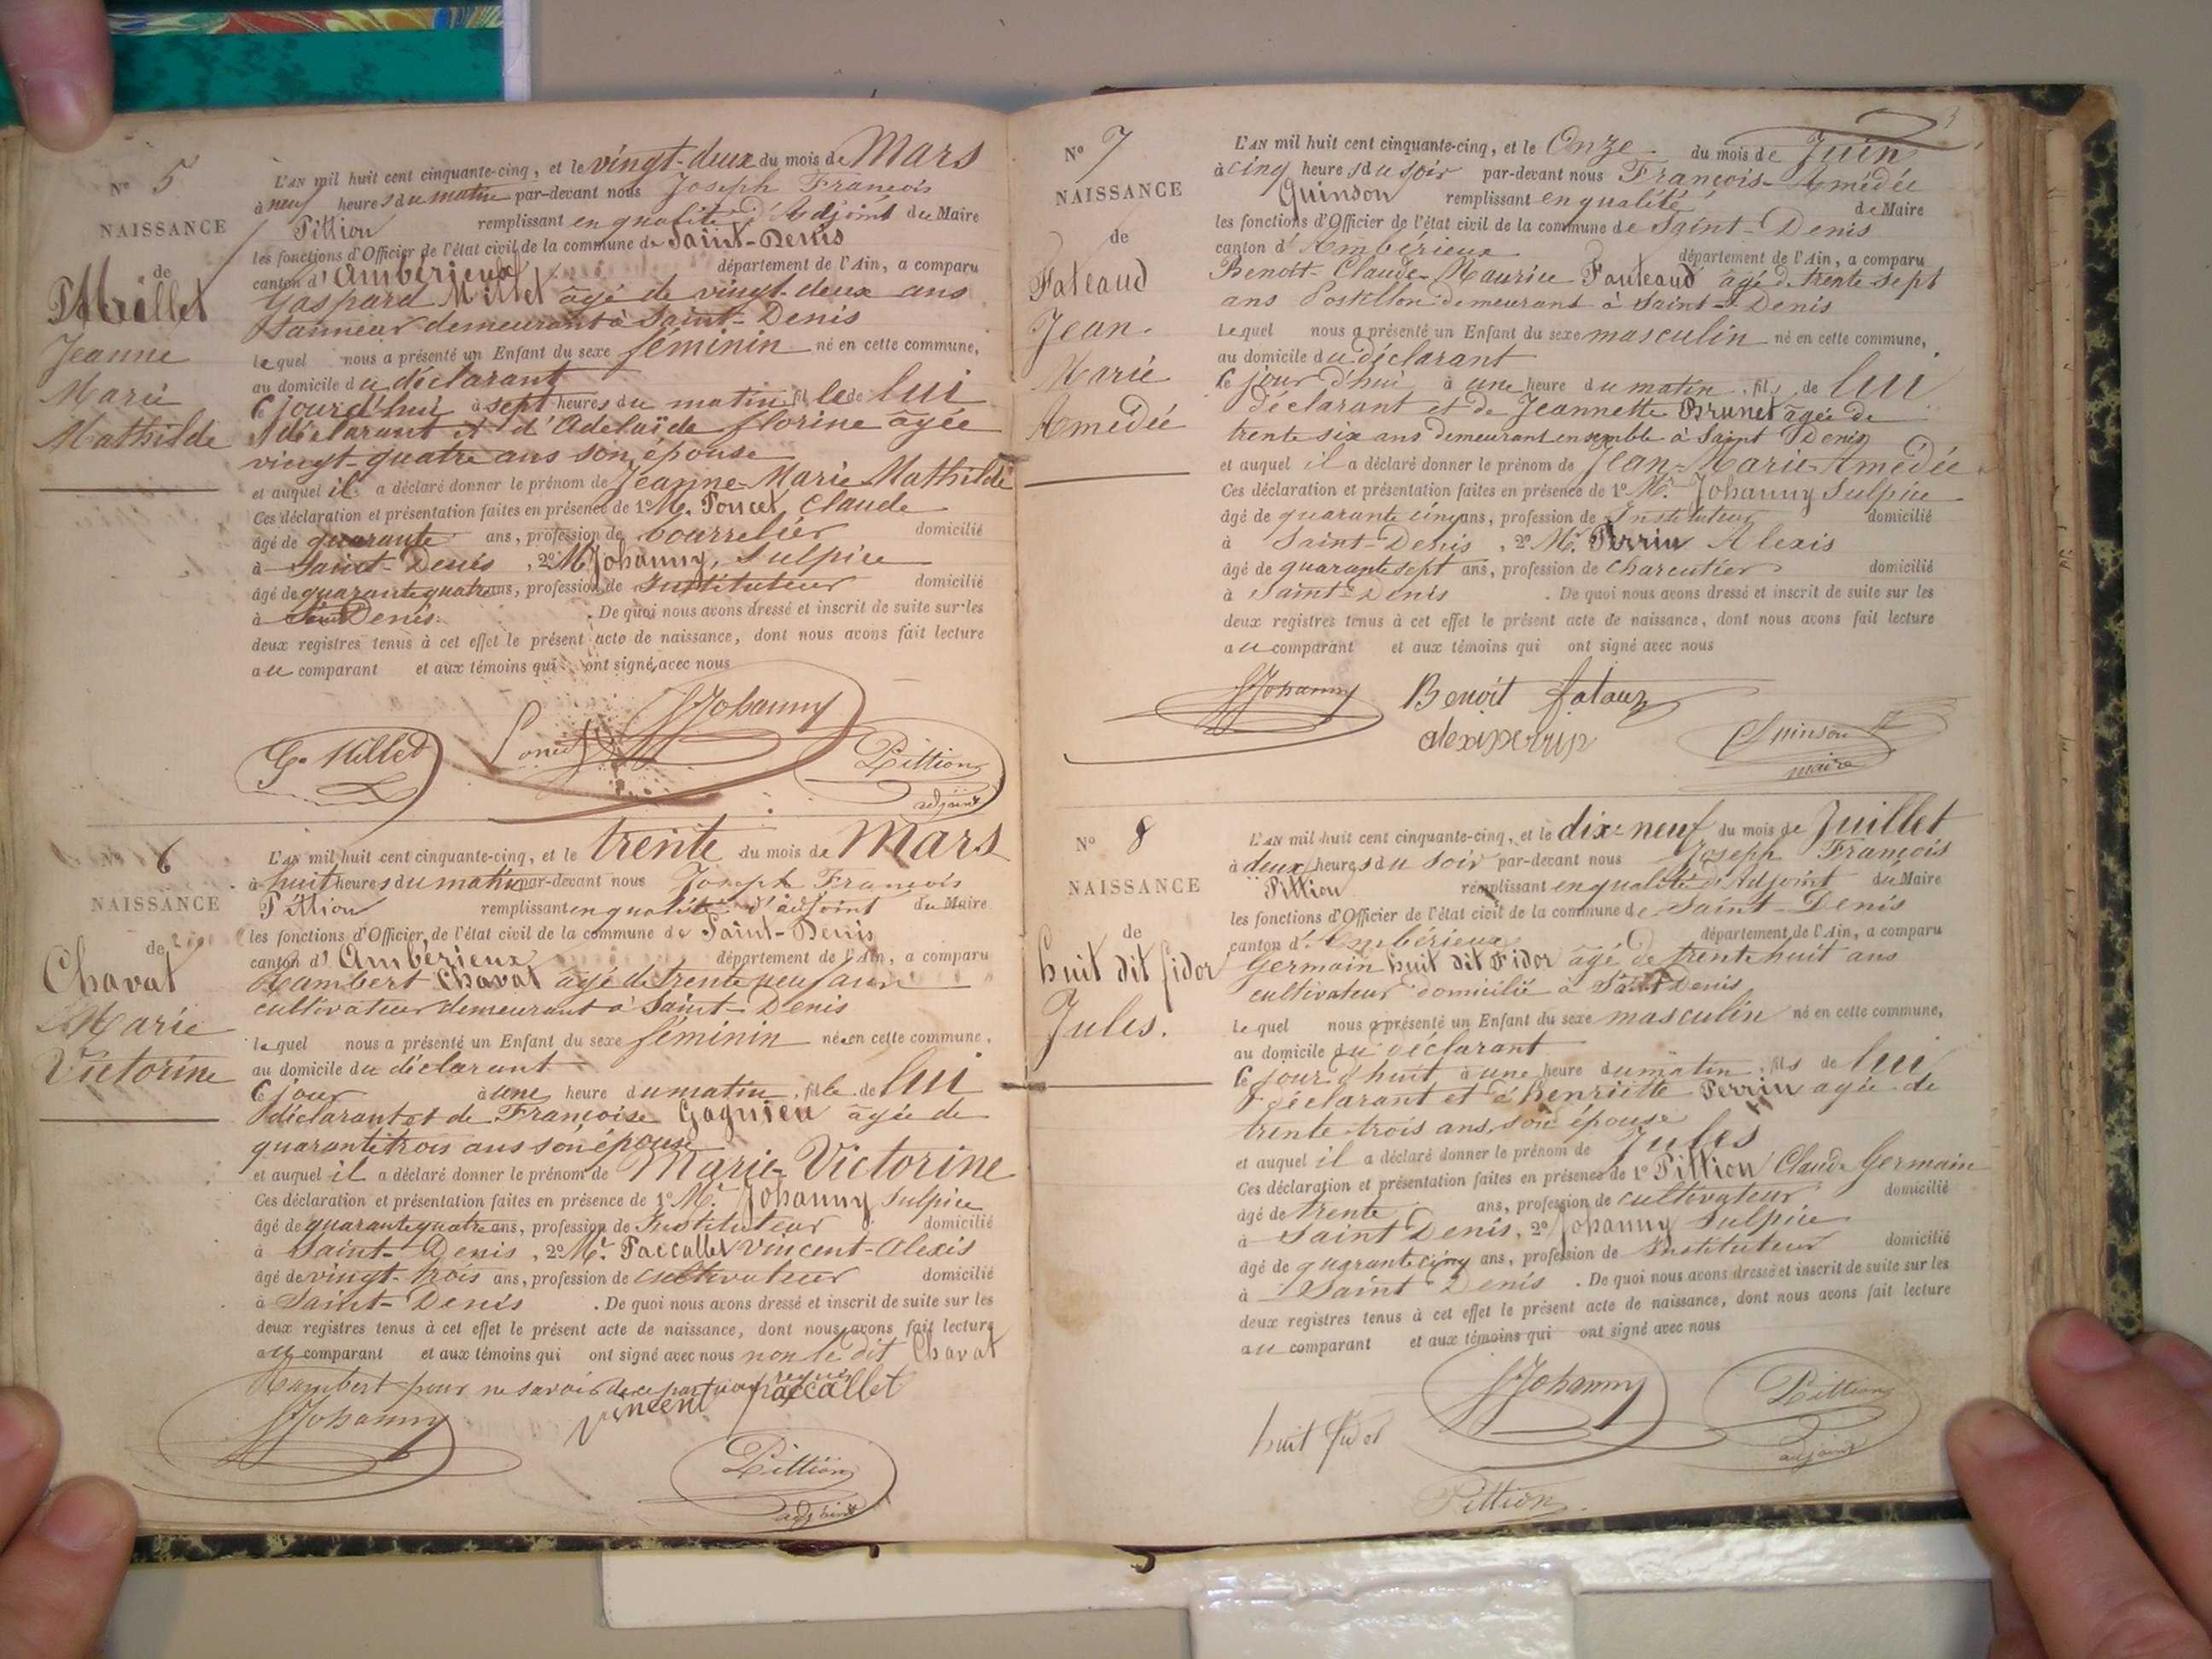 N° 5
NAISSANCE
de
Millet
Jeanne
Marie
Mathilde
L'AN mil huit cent cinquante-cinq, et le vingt-deux du mois de Mars
à neuf heures du matin par-devant nous Joseph François
Pittion remplissant en qualité d'Adjoint du Maire
les fonctions d'Officier de l'état civil de la commune de Saint-Denis
canton d'Ambérieux département de l'Ain, a comparu
Gaspard Millet âgé de vingt-deux ans
tanneur demeurant à Saint-Denis
lequel nous a présenté un Enfant du sexe féminin né en cette commune,
au domicile du déclarant
ce jourd'hui à sept heures du matin, fille de lui
déclarant et d'Adelaïde florine âgée
vingt-quatre ans son épouse
et auquel il a déclaré donner le prénom de Jeanne-Marie-Mathilde
Ces déclaration et présentation faites en présence de 1° M. Poncet, Claude
âgé de quarante ans, profession de bourrelier domicilié
à Saint-Denis, 2° M. Johanny, Sulpice
âgé de quarante quatre ans, profession de Instituteur domicilié
à Saint Denis. De quoi nous avons dressé et inscrit de suite sur les
deux registres tenus à cet effet le présent acte de naissance, dont nous avons fait lecture
au comparant et aux témoins qui ont signé avec nous
G. Millet Poncet SJohanny Pittion
adjoint
N° 6
NAISSANCE
de
Chavat
Marie
Victorine
L'AN mil huit cent cinquante-cinq, et le trente du mois de Mars
à huit heures du matin par-devant nous Joseph François
Pittion remplissant en qualité d'adjoint du Maire
les fonctions d'Officier de l'état civil de la commune de Saint-Denis
canton d'Ambérieux département de l'Ain, a comparu
Rambert Chavat âgé de trente neuf ans
cultivateur demeurant à Saint-Denis
lequel nous a présenté un Enfant du sexe féminin né en cette commune,
au domicile du déclarant
ce jour à une heure du matin, fille de lui
déclarant et de Françoise Gagnieu âgée de
quarante trois ans son épouse
et auquel il a déclaré donner le prénom de Marie-Victorine
Ces déclaration et présentation faites en présence de 1° Mr. Johanny Sulpice
âgé de quarante quatre ans, profession de Instituteur domicilié
à Saint-Denis, 2° Mr. Paccallet Vincent-Alexis
âgé de vingt-trois ans, profession de cultivateur domicilié
à Saint-Denis. De quoi nous avons dressé et inscrit de suite sur les
deux registres tenus à cet effet le présent acte de naissance, dont nous avons fait lecture
au comparant et aux témoins qui ont signé avec nous non le dit Chavat
Rambert pour ne savoir de ce par nous requis
SJohanny Vincent paccallet
Pittion
adjoint
N° 7
NAISSANCE
de
Fateaud
Jean
Marie
Amédée
L'AN mil huit cent cinquante-cinq, et le Onze du mois de Juin
à cinq heures du soir par-devant nous François-Amédée
Quinson remplissant en qualité de Maire
les fonctions d'Officier de l'état civil de la commune de Saint-Denis
canton d'Ambérieux département de l'Ain, a comparu
Benoît-Claude-Maurice Fauteaud âgé de trente-sept
ans Postillon demeurant à Saint-Denis
lequel nous a présenté un Enfant du sexe masculin né en cette commune,
au domicile du déclarant
ce jour d'hui à une heure du matin, fils de lui
déclarant et de Jeannette Brunet âgée de
trente six ans demeurant ensemble à Saint Denis
et auquel il a déclaré donner le prénom de Jean-Marie-Amédée
Ces déclaration et présentation faites en présence de 1° Mr. Johanny Sulpice
âgé de quarante cinq ans, profession de Instituteur domicilié
à Saint-Denis, 2° M. Perrin Alexis
âgé de quarante sept ans, profession de charcutier domicilié
à Saint-Denis. De quoi nous avons dressé et inscrit de suite sur les
deux registres tenus à cet effet le présent acte de naissance, dont nous avons fait lecture
au comparant et aux témoins qui ont signé avec nous
SJohanny Benoit
alexis perrin Quinson
maire
N° 8
NAISSANCE
de
huit dit fidor
Jules.
L'AN mil huit cent cinquante-cinq, et le dix-neuf du mois de Juillet
à deux heures du soir par-devant nous Joseph François
Pittion remplissant en qualité d'Adjoint du Maire
les fonctions d'Officier de l'état civil de la commune de Saint-Denis
canton d'Ambérieux département de l'Ain, a comparu
Germain huit dit Fidor âgé de trente huit ans
cultivateur domicilié à Saint Denis
lequel nous a présenté un Enfant du sexe masculin né en cette commune,
au domicile du déclarant
ce jour d'huit à une heure du matin, fils de lui
déclarant et d'henriette Perrin agée de
trente-trois ans son épouse
et auquel il a déclaré donner le prénom de Jules
Ces déclaration et présentation faites en présence de 1° Pittion Claude Germain
âgé de trente ans, profession de cultivateur domicilié
à Saint Denis, 2° Johanny Sulpice
âgé de quarante cinq ans, profession de Instituteur domicilié
à Saint Denis. De quoi nous avons dressé et inscrit de suite sur les
deux registres tenus à cet effet le présent acte de naissance, dont nous avons fait lecture
au comparant et aux témoins qui ont signé avec nous
huit fidor SJohanny Pittion
adjoint
Pittion